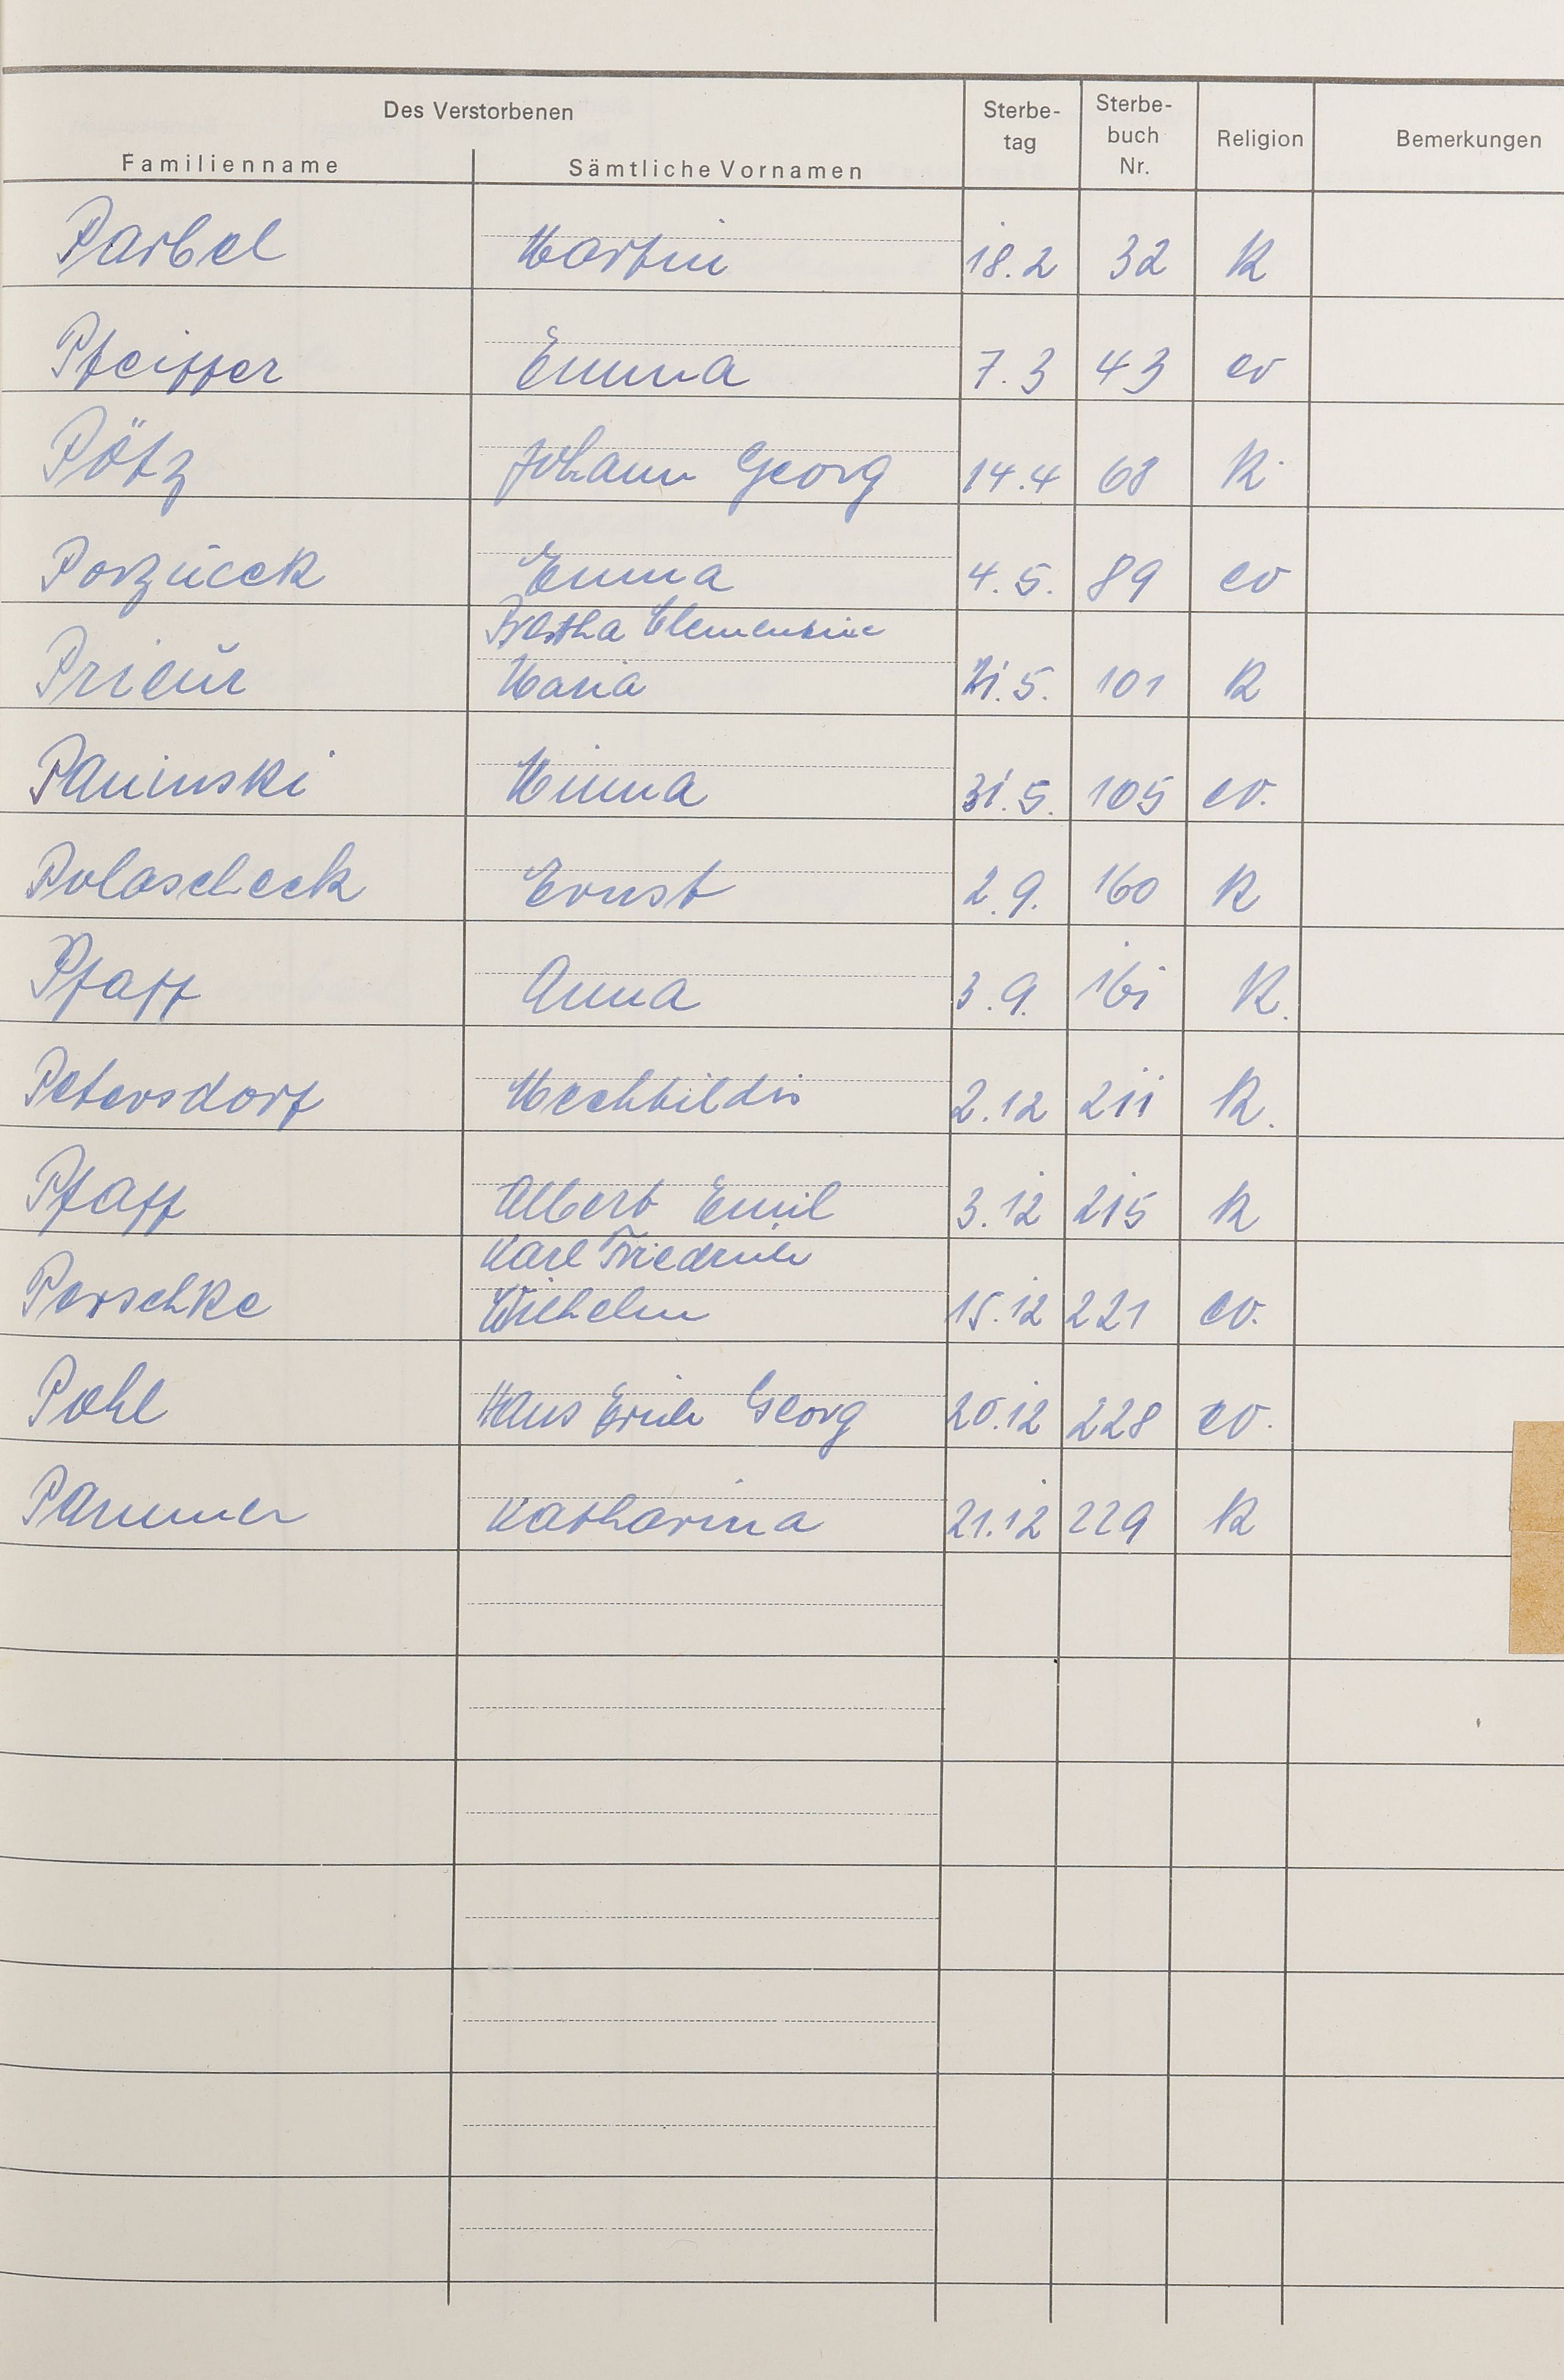 Des Verstorbenen
Familienname Sämtliche Vornamen Sterbe-tag Sterbe-buch Nr. Religion Bemerkungen
Parbel Martin 18.2 32 K
Pfeiffer Emma 7.3 43 ev
Pötz Johann Georg 14.4 68 K
Porzucek Emma 4.5. 89 ev
Bertha Clementine
Prieur Maria 21.5. 101 K
Paninski Minna 31.5. 105 ev.
Polascheck Ernst 2.9. 160 K
Pfaff Anna 3.9. 161 K.
Petersdorf Mechtildis 2.12 211 K.
Pfaff Albert Emil 3.12 215 K
Karl Friedrich
Perschke Wilhelm 15.12 221 ev.
Pohl Hans Erich Georg 20.12 228 ev.
Pammer Katharina 21.12 229 K